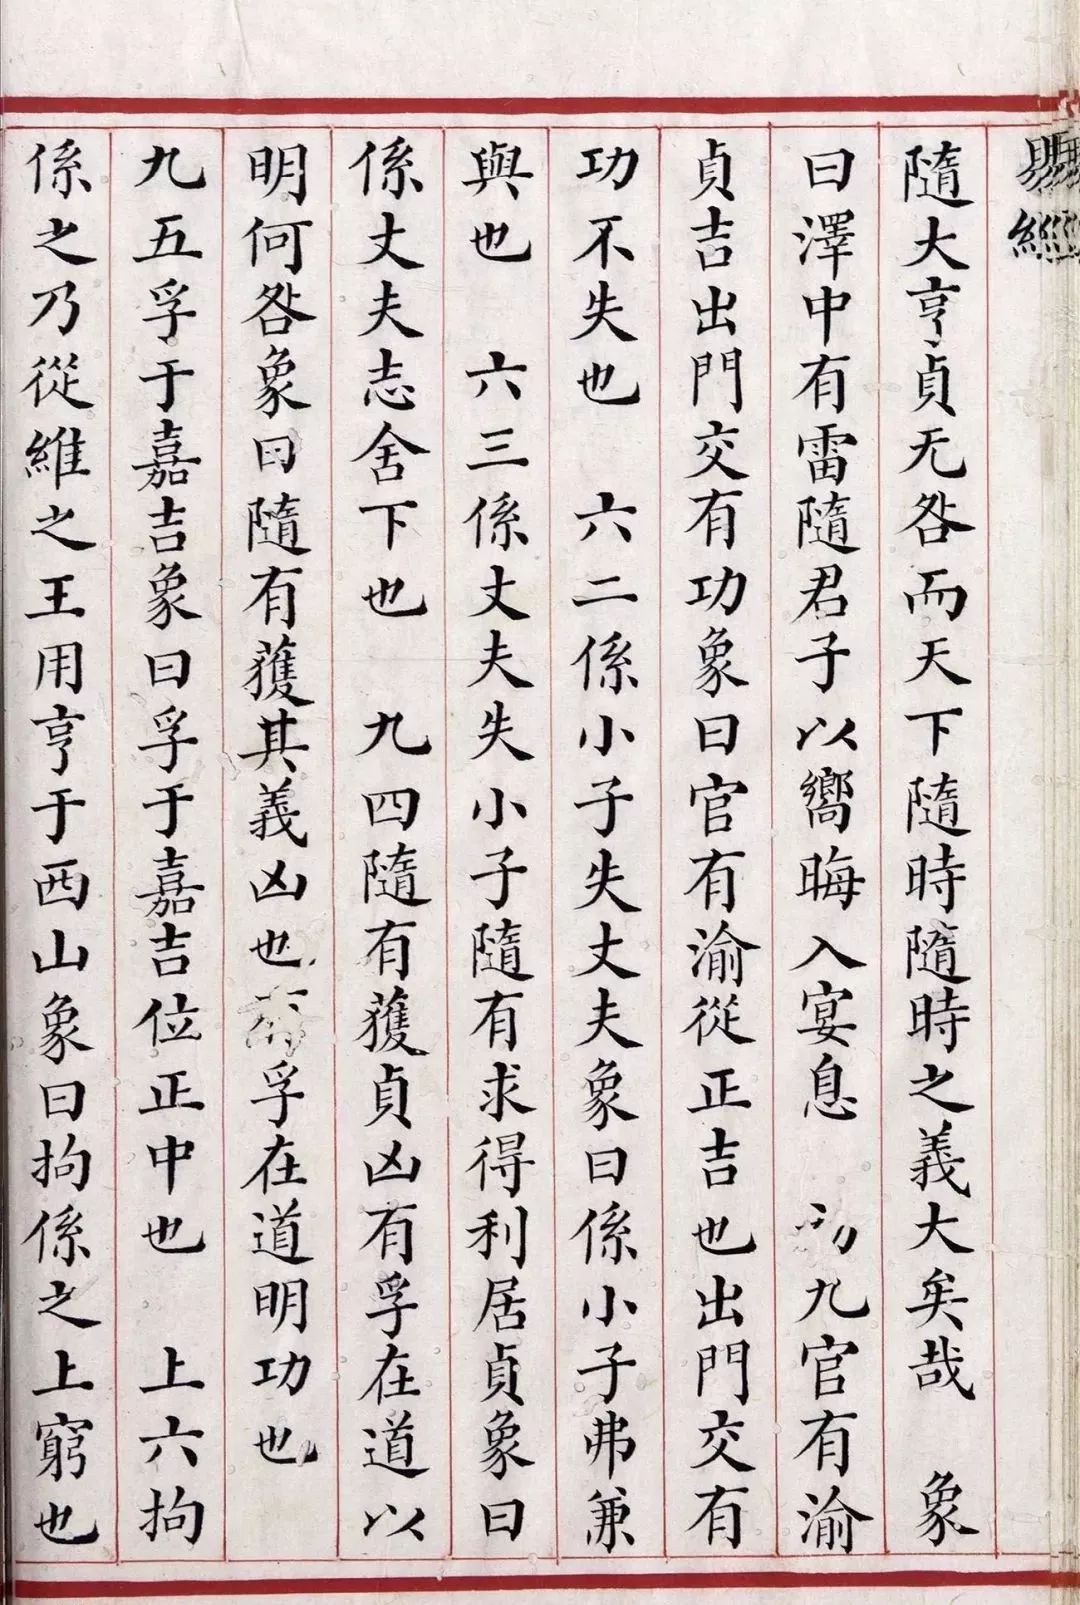 易經
隨大亨貞无咎而天下隨時隨時之義大矣哉　象
曰澤中有雷隨君子以嚮晦入宴息　初九官有渝
貞吉出門交有功象曰官有渝從正吉也出門交有
功不失也　六二係小子失丈夫象曰係小子弗兼
與也　六三係丈夫失小子隨有求得利居貞象曰
係丈夫志舍下也　九四隨有獲貞凶有孚在道以
明何咎象曰隨有獲其義凶也有孚在道明功也
九五孚于嘉吉象曰孚于嘉吉位正中也　上六拘
係之乃從維之王用亨于西山象曰拘係之上窮也